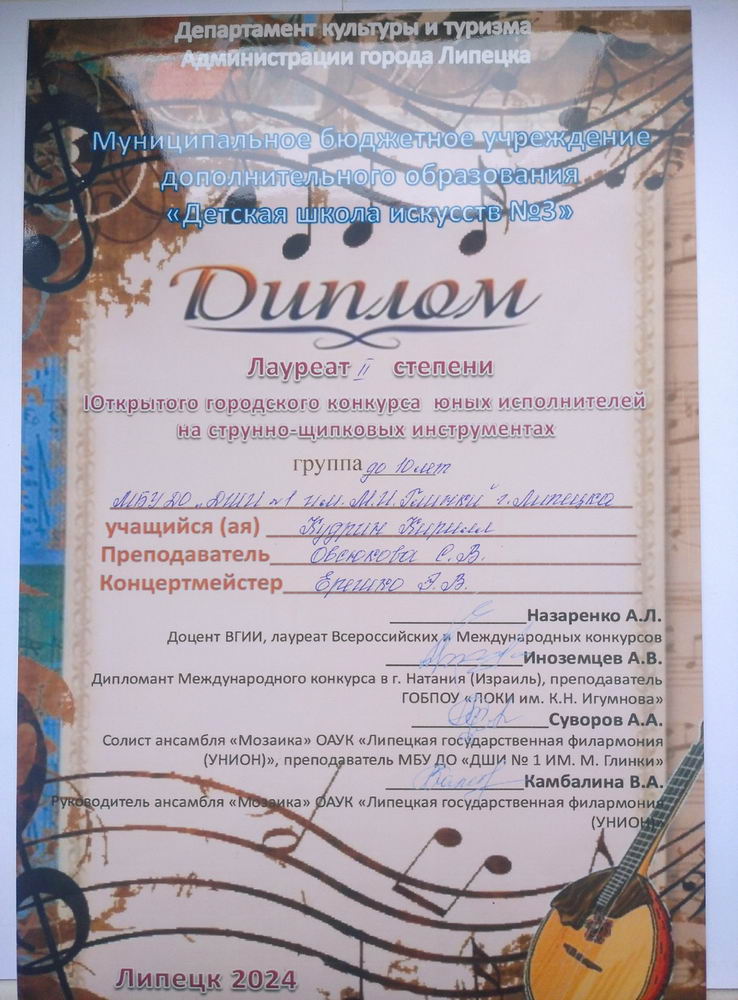 Департамент культуры и туризма
Администрации города Липецка
Муниципальное бюджетное учреждение
дополнительного образования
«Детская школа искусств №3»
Диплом
Лауреат II степени
IОткрытого городского конкурса юных исполнителей
на струнно-щипковых инструментах
группа до 10 лет
МБУ ДО „ДШИ №1 им. М.И. Глинки" г. Липецка
учащийся (ая) Кудрин Кирилл
Преподаватель Овсюкова С.В.
Концертмейстер Ерешко Э.В.
Назаренко А.Л.
Доцент ВГИИ, лауреат Всероссийских и Международных конкурсов
Иноземцев А.В.
Дипломант Международного конкурса в г. Натания (Израиль), преподаватель
ГОБПОУ «ЛОКИ им. К.Н. Игумнова»
Суворов А.А.
Солист ансамбля «Мозаика» ОАУК «Липецкая государственная филармония
(УНИОН)», преподаватель МБУ ДО «ДШИ № 1 ИМ. М. Глинки»
Камбалина В.А.
Руководитель ансамбля «Мозаика» ОАУК «Липецкая государственная филармония
(УНИОН)»
Липецк 2024